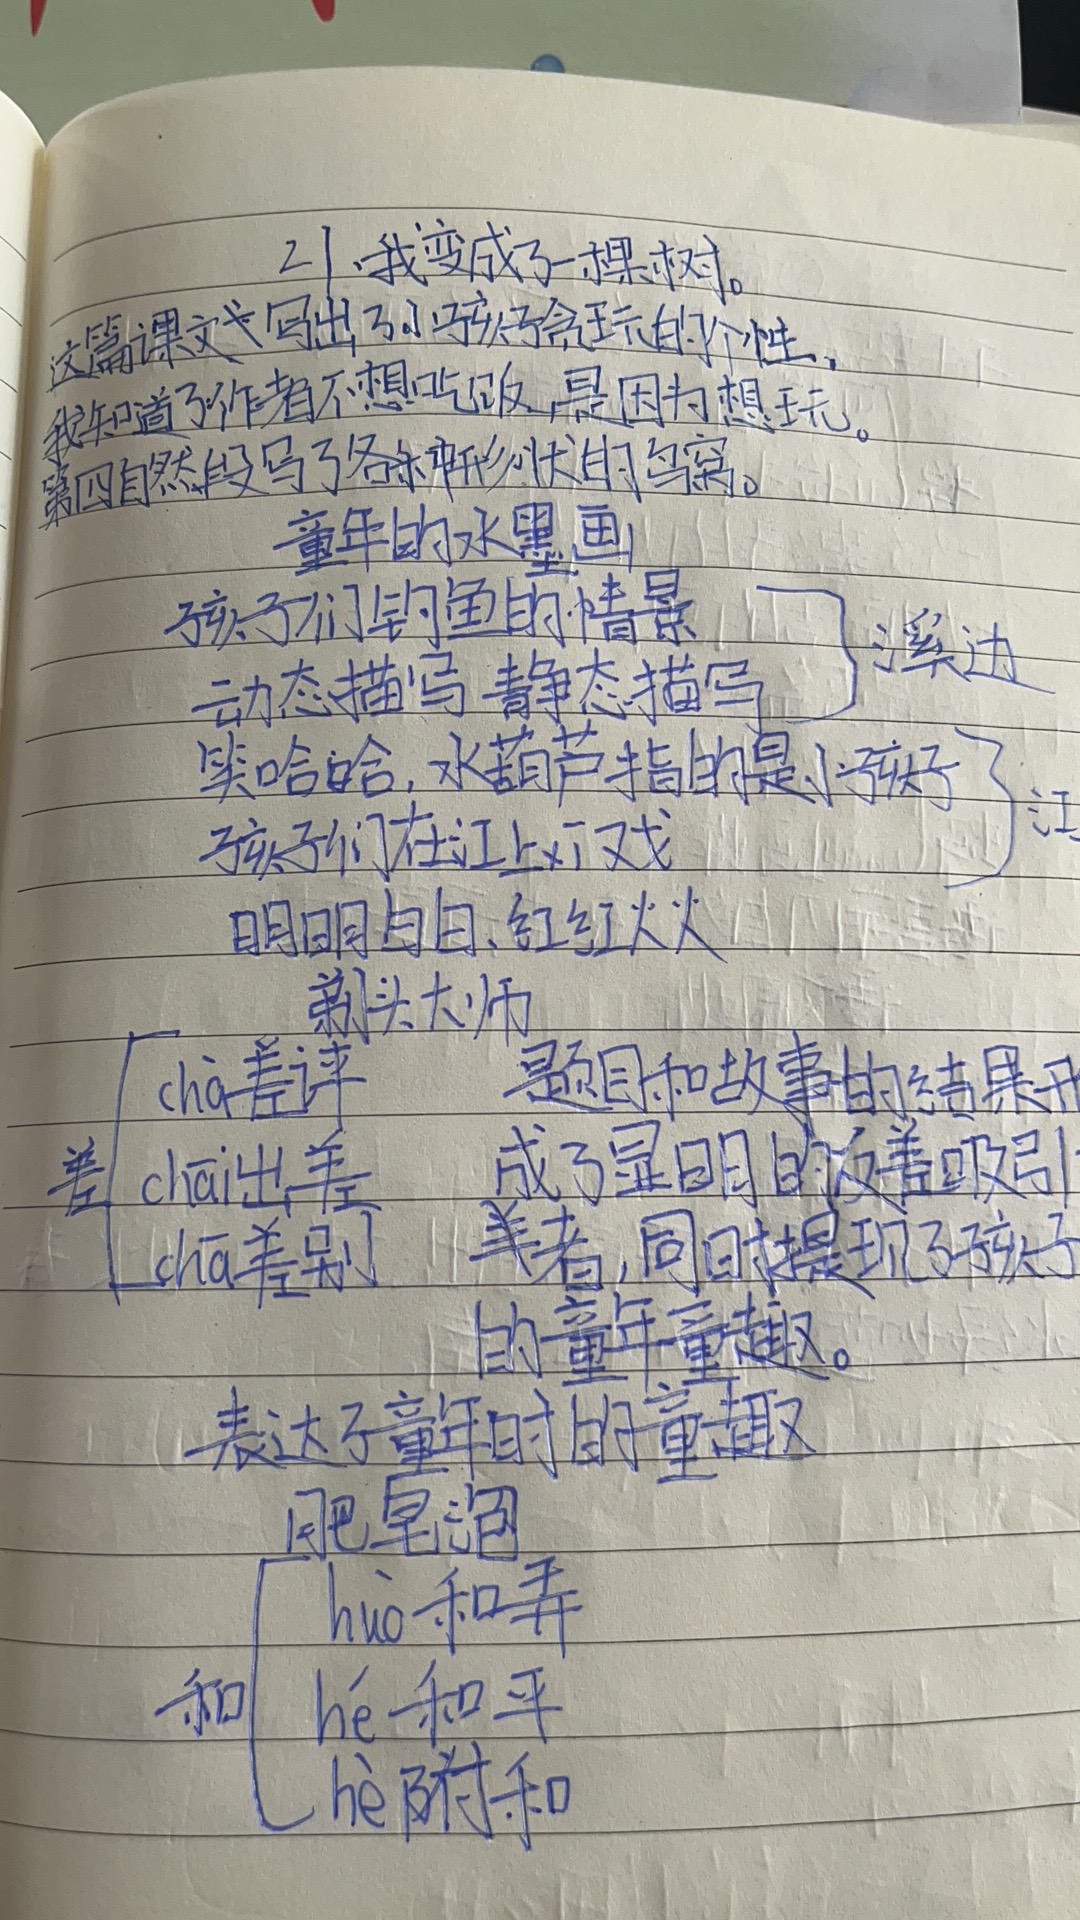 21、我变成了一棵树。
这篇课文写出了小孩子贪玩的个性,
我知道了作者不想吃饭,是因为想玩。
第四自然段写了各种形状的鸟窝。
童年的水墨画
孩子们钓鱼的情景
溪边
动态描写 静态描写
笑哈哈,水葫芦指的是小孩子
江
孩子们在江上对戏
明明白白、红红火火
剃头大师
chà差评
差
chāi出差
chā差别
题目和故事的结果形
成了显明的反差吸引
者,同时提现了孩子
的童年童趣。
表达了童年时的童趣
肥皂泡
huò和弄
和
hé和平
hè附和